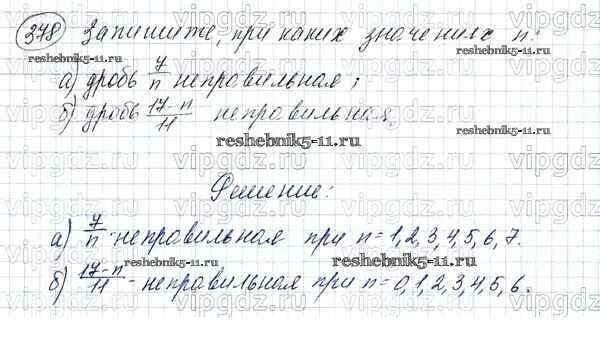 378 Запишите, при каких значениях n:
а) дробь 7/n неправильная;
б) дробь (17-n)/11 неправильная.
reshebnik5-11.ru
reshebnik5-11.ru
reshebnik5-11.ru
Решение:
а) 7/n - неправильная при n = 1, 2, 3, 4, 5, 6, 7.
reshebnik5-11.ru
reshebnik5-11.ru
б) (17-n)/11 - неправильная при n = 0, 1, 2, 3, 4, 5, 6.